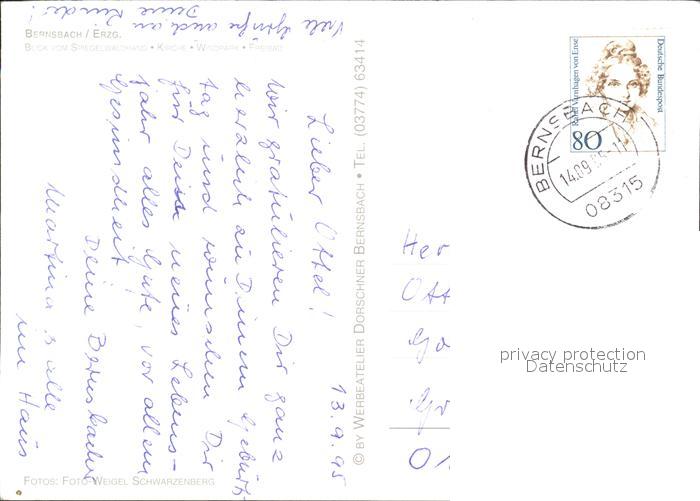 BERNSBACH / ERZG.
BLICK VOM SPIEGELWALDHANG • KIRCHE • WINDPARK • FREIBAD
13.9.95
Lieber Ottel!
Wir gratulieren Dir ganz
herzlich zu Deinem Geburts-
tag und wünschen Dir
für Dein neues Lebens-
jahr alles Gute, vor allem
Gesundheit
Deine Bernsbacher
Martina & alle
im Haus
Viele Grüße auch an
Deine Kinder!
© BY WERBEATELIER DORSCHNER BERNSBACH • TEL. (03774) 63414
FOTOS: FOTO-WEIGEL SCHWARZENBERG
Deutsche Bundespost
Rahel Varnhagen von Ense
80
BERNSBACH
14.09.95
08315
Her
Ott
privacy protection
Datenschutz